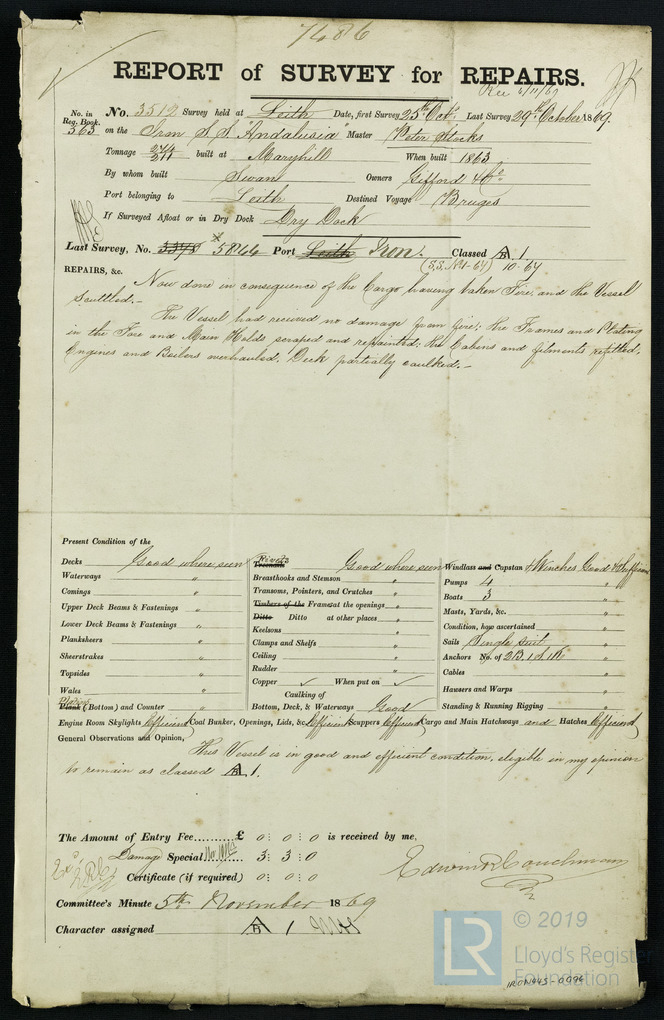 7486
REPORT of SURVEY for REPAIRS.
Rec 6/11/69
No. in Reg. Book. 563 No. 3512 Survey held at Leith Date, first Survey 25th Octr. Last Survey 29th October 1869.
on the Iron S.S. "Andalusia" Master Peter Stocks
Tonnage 274 211 built at Maryhill When built 1863
By whom built Swan Owners Gifford & Co.
Port belonging to Leith Destined Voyage Bruges
If Surveyed Afloat or in Dry Dock Dry Dock
Last Survey, No. 5866 Port Leith Iron. Classed A 1.
(S.S. No.1-67) 10.67
REPAIRS, &c. Now done in consequence of the Cargo having taken Fire, and the Vessel
Scuttled.-
The Vessel had received no damage from fire; the Frames and Plating
in the Fore and Main Holds scraped and repainted; the Cabins and fitments refitted,
Engines and Boilers overhauled, Deck partially caulked.-
Present Condition of the
Decks Good where seen
Waterways "
Comings "
Upper Deck Beams & Fastenings "
Lower Deck Beams & Fastenings "
Planksheers "
Sheerstrakes "
Topsides "
Wales "
Plating
Plank (Bottom) and Counter "
Rivets
Treenails Good where seen
Breasthooks and Stemson "
Transoms, Pointers, and Crutches "
Timbers of the Frames at the openings "
Ditto Ditto at other places "
Keelsons "
Clamps and Shelfs "
Ceiling "
Rudder "
Copper ✓ When put on ✓
Caulking of
Bottom, Deck, & Waterways Good
Windlass and Capstan 4 Winches Good & Sufficient
Pumps 4 "
Boats 3 "
Masts, Yards, &c. "
Condition, how ascertained "
Sails Single suit "
Anchors No. of 2B. 1S. 1K "
Cables "
Hawsers and Warps "
Standing & Running Rigging "
Engine Room Skylights Efficient Coal Bunker, Openings, Lids, &c. Efficient Scuppers Efficient Cargo and Main Hatchways and Hatches Efficient
General Observations and Opinion,
This Vessel is in good and efficient condition, eligible in my opinion
to remain as classed A 1.
The Amount of Entry Fee.........£ 0 : 0 : 0 is received by me,
Damage Special 3 : 3 : 0
Certificate (if required) 0 : 0 : 0
Edwin R. Couchman
Committee's Minute 5th November 1869
Character assigned A 1
LR © 2019
Lloyd's Register
Foundation
IRON445-0096